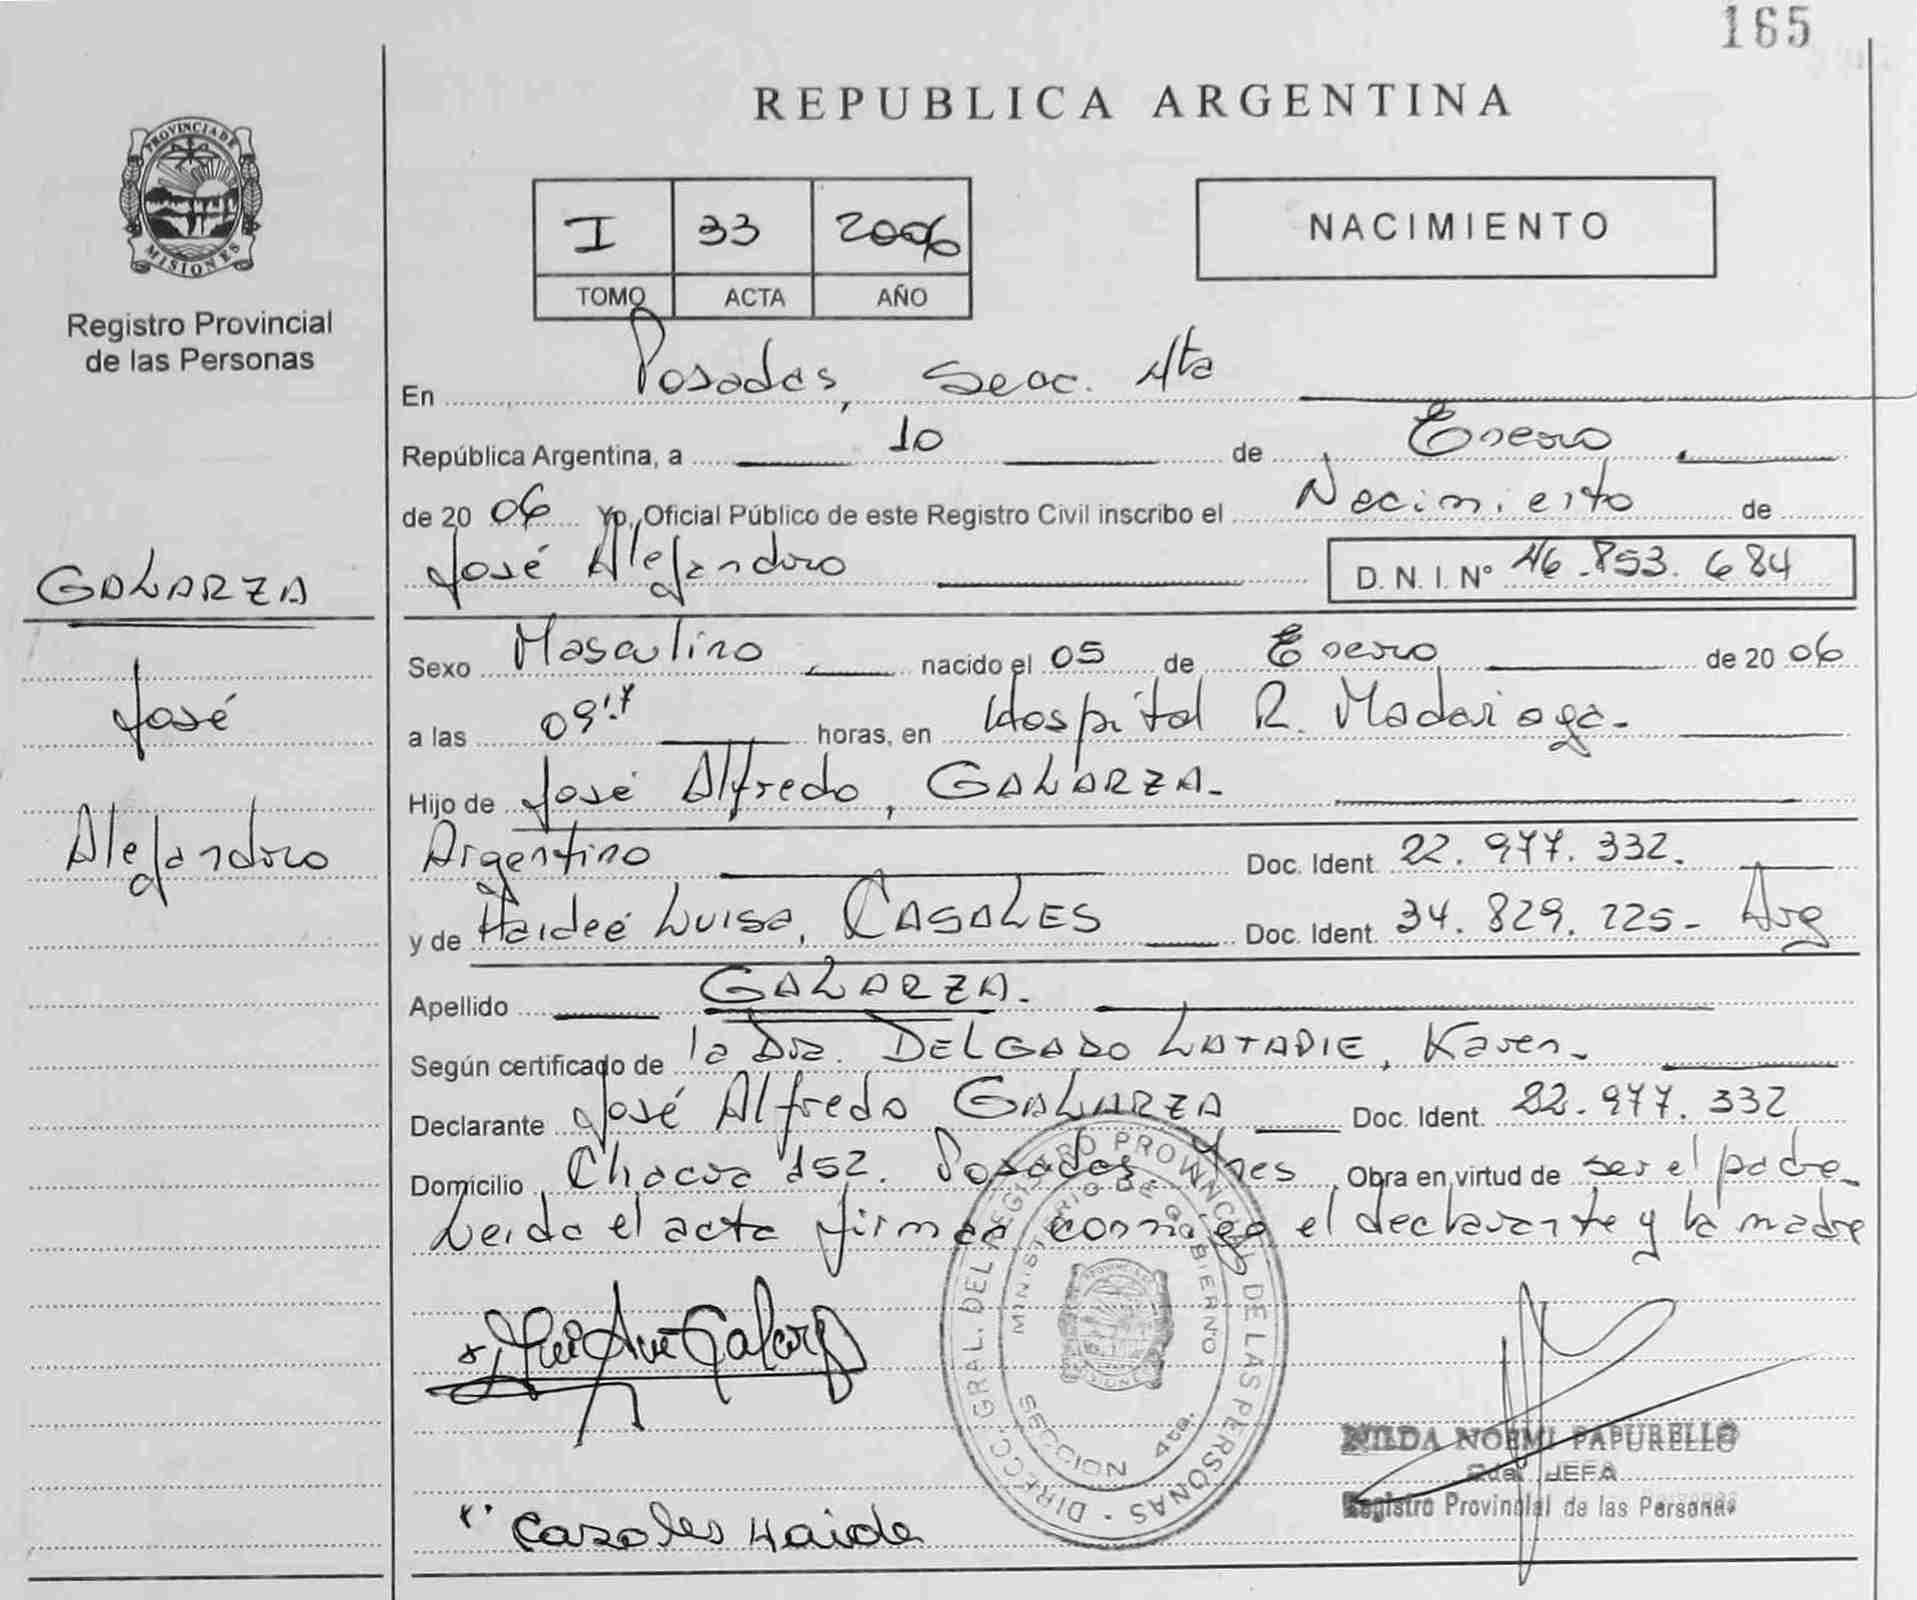 165
REPUBLICA ARGENTINA
PROVINCIA DE
MISIONES
Registro Provincial
de las Personas
I 33 2006
TOMO ACTA AÑO
NACIMIENTO
En Posadas, Secc. 4ta
República Argentina, a 10 de Enero
de 2006 Yo, Oficial Público de este Registro Civil inscribo el Nacimiento de
José Alejandro D. N. I. Nº 46.853.684
GALARZA
José
Alejandro
Sexo Masculino nacido el 05 de Enero de 2006
a las 09:17 horas, en Hospital R. Madariaga-
Hijo de José Alfredo, GALARZA-
Argentino Doc. Ident. 22.977.332.
y de Haideé Luisa, CASALES Doc. Ident. 34.829.225- Arg
Apellido GALARZA.
Según certificado de la Dra. DELGADO LATADIE, Karen-
Declarante José Alfredo GALARZA Doc. Ident. 22.977.332
Domicilio Chacra 152. Posadas, Mnes Obra en virtud de ser el padre-
Leida el acta firman conmigo el declarante y la madre
DIRECC. GRAL. DEL REGISTRO PROVINCIAL DE LAS PERSONAS
MINISTERIO DE GOBIERNO
SECCION 4ta.
NILDA NOEMI PAPURELLO
JEFA
Registro Provincial de las Personas
Casales Haide